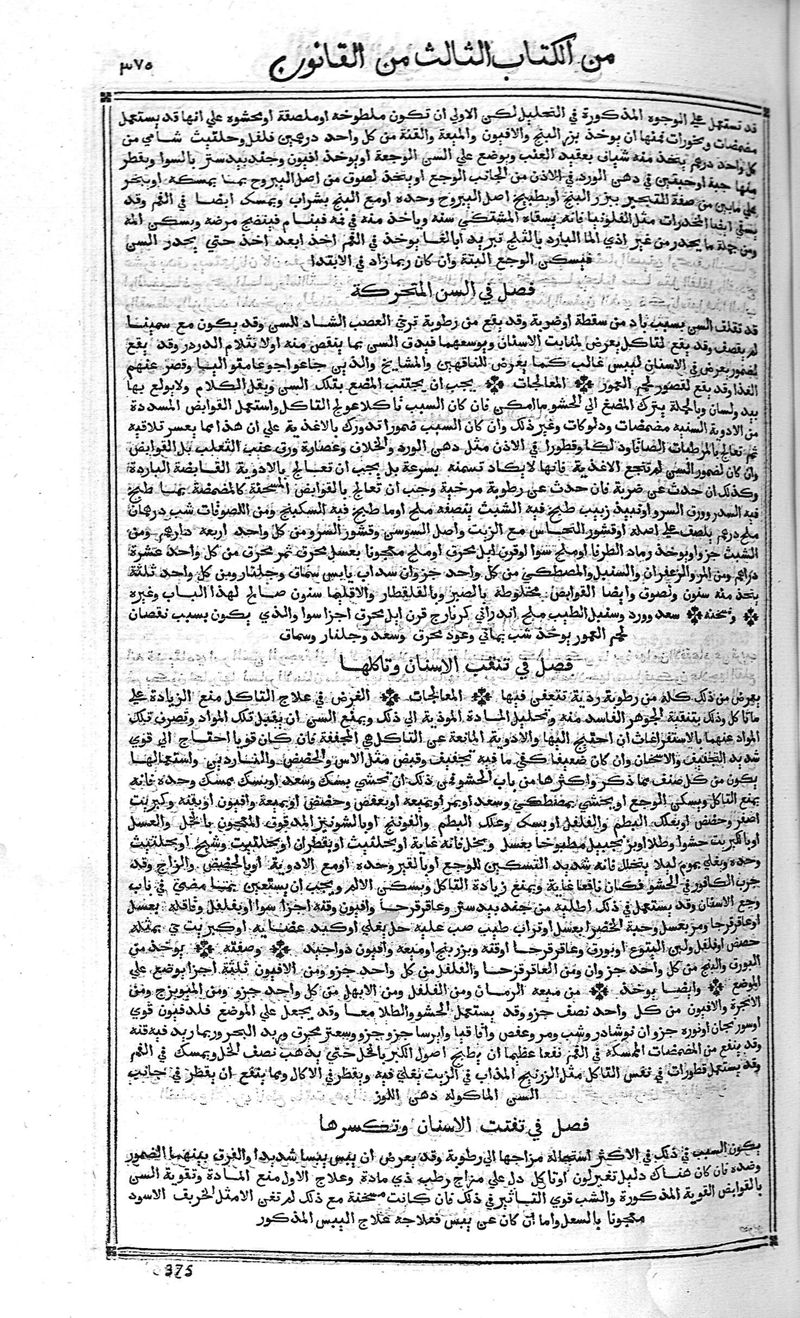 من الكتاب الثالث من القانون
٣٧٥
قد تستعمل علي الوجوه المذكورة في التحليل لكن الاولي ان تكون ملطوخه او ملصقة او محشوه علي انها قد يستعمل
مضمضات وبخورات فمنها ان يوخذ بزر البنج والافيون والميعة والقنة من كل واحد درهمين فلفل وحلتيت شامي من
كل واحد درهم يتخذ منه شياف بعقيد العنب ويوضع علي السن الوجعة او يوخذ افيون وجندبيدستر بالسوا ويقطر
منها حبة او حبتين في دهن الورد في الاذن من الجانب الوجع او يتخذ لصوق من اصل اليبروح بما يمسكه او يبخر
علي ما بين من صفة التبخير ببزر البنج او يطبخ اصل اليبروح وحده او مع البنج بشراب ويمسك ايضا في الفم وقد
يسقي ايضا المخدرات مثل الفلونيا فانه يسقاه المشتكي سنه وياخذ منه في فمه فينام فينضج مرضه ويسكن المه
ومن جملة ما يخدر من غير اذي الما البارد بالثلج تبريدا بالغا يوخذ في الفم اخذ ابعد اخذ حتي يخدر السن
فيسكن الوجع البتة وان كان ربما زاد في الابتدا
فصل في السن المتحركة
قد تقلف السن بسبب باد من سقطة او ضربة وقد يقع من رطوبة ترخي العصب الشاد للسن وقد يكون مع سمينا
لم يقصف وقد يقع لتاكل يعرض لمنابت الاسنان ويوسعهما فيدق السن بما ينقص منه او لانثلام الدردر وقد يقع
لضمور يعرض في الاسنان ليبس غالب كما يعرض للناقهين والمشايخ والذين جاعوا جوعا متواليا وقصر عنهم
الغذا وقد يقع لقصور لحم العمور المعالجات يجب ان يجتنب المضغ بتلك السن ويقل الكلام ولا يولع بها
بيد ولسان وبالجملة يترك المضغ الي الحشو ما امكن فان كان السبب تاكلا عولج التاكل واستعمل القوابض المسددة
من الادوية السنيه مضمضات ودلوكات وغير ذلك وان كان السبب ضمورا تدورك بالاغذية علي ان هذا مما يعسر تلافيه
ثم تعالج بالمرطبات دلكا وقطورا في الاذن مثل دهن الورد والخلاف وعصارة ورق عنب الثعلب بل القوابض
وان كان لضمور السن لم تنجع الاغذية فانها لا يكاد تسمنه بسرعة بل يجب ان تعالج بالادوية القابضة الباردة
وكذلك ان حدث عن ضربة فان حدث عن رطوبة مرخية وجب ان تعالج بالقوابض المسخنة كالمضمضة بما طبخ
فيه السدر وورق السرو او نبيذ زبيب طبخ فيه الشبث بنصفه ملح او ما طبخ فيه السكبينج ومن اللصوقات شب درهمان
ملح درهم يلصف علي اصله او قشور النحاس مع الزيت واصل السوسن وقشور السرو من كل واحد اربعه دراهم ومن
الشبث جزوا ويوخذ رماد الطرفا وملح سوا او قرون ايل محرق او ملح معجونا بعسل محرق تمر محرق من كل واحد عشرة
دراهم ومن المر والزعفران والسنبل والمصطكي من كل واحد جزو ان سداب يابس سماق وجلنار وبن كل واحد ثلثة
يتخذ منه سنون ولصوق وايضا القوابض مخلوطة بالصبر وبالقلقطار والاقليما سنون صالح لهذا الباب وغيره
ونسخته سعد وورد وسنبل الطيب ملح اندراني كزمازج قرن ايل محرق اجزا سوا والذي يكون بسبب نقصان
لحم العمور يوخذ شب يماني وعود محرق وسعد وجلنار وسماق
فصل في تثقب الاسنان وتاكلها
يعرض من ذلك كله من رطوبة ردية تتعفن فيها المعالجات الغرض في علاج التاكل منع الزيادة علي
ما تاكل وذلك بتنقية الجوهر الفاسد منه وتحليل المادة الموذية الي ذلك ويمنع السن ان يقبل تلك المواد وتصرف تلك
المواد عنها بالاستفراغات ان احتيج اليها والادوية المانعة عن التاكل هي المجففة فان كان قويا احتاج الي قوي
شديد التجفيف والاسخان وان كان ضعيفا كفي ما فيه تجفيف وقبض مثل الاس والحضض والناردين واستعمالها
يكون من كل صنف مما ذكر واكثرها من باب الحشو فمن ذلك ان تحشي بسك وسعد او بسك ممسك وحده فانه
يمنع التاكل ويسكن الوجع او يحشي بمصطكي وسعد او بمر او بميعه او بعفص وحضض او بميعة وافيون او بقنه وكبريت
اصفر وحضض او بعلك البطم والفلفل او بسك وعلك البطم والفوتنج او بالشونيز المدقوق المعجون بالخل والعسل
او بالكبريت حشوا وطلا او بزنجبيل مطبوخا بعسل وبخل فانه غاية او بحلتيت او بقطران او بحلتيت وشيح او بحلتيت
وحده ويغلي بموم ليلا يتخلل فانه شديد التسكين للوجع او بالقير وحده او مع الادوية او بالحضض والزاج وقد
جرب الكافور في الحشو فكان نافعا غاية ويمنع زيادة التاكل ويسكن الالم ويجب ان يستعين بما مضي في باب
وجع الاسنان وقد يستعمل في ذلك اطليه من جندبيدستر وعاقرقرحا وافيون وقنه اجزا سوا او بفلفل وقاقله بعسل
او عاقرقرحا ومر بعسل وحبة الخضرا بعسل او تراب طيب صب عليه خل يغلي او كبد عضايه او كبريت حي بمثله
حضض او فلفل ولبن اليتوع او بورق وعاقرقرحا او قنه وبزر بنج او ميعه وافيون فوا جيد وصفته يوخذ من
البورق والبنج من كل واحد جزوان ومن العاقرقرحا والفلفل من كل واحد جزو ومن الافيون ثلثة اجزا يوضع علي
الموضع وايضا يوخذ من ميعه الرمان ومن الفلفل ومن الابهل من كل واحد جزو ومن الميويزج ومن
الانجرة والافيون من كل واحد نصف جزو وقد يستعمل الحشو والطلا معا وقد يجعل علي الموضع فلدفيون قوي
او سورنجان او نوره جزو ان نوشادر وشب ومر وعفص واقاقيا وايرسا جزو جزو وسعتر محرق وربد البحر وربما ريد فيه قنه
وقد ينفع من المضمضات الممسكة في الفم نفعا عظيما ان يطبخ اصول الكبر بالخل حتي يذهب نصف الخل ويمسك في الفم
وقد يستعمل قطورات في نفس التاكل مثل الزرنيخ المذاب في الزيت يغلي فيه ويقطر في الاكال ومما ينفع ان يقطر في جانب
السن الماكوله دهن اللوز
فصل في تفتت الاسنان وتكسرها
يكون السبب في ذلك في الاكثر استحالة مزاجها الي رطوبة وقد يعرض ان ييبس يبسا شديدا والفرق بينهما الضمور
وضده فان كان هناك دليل تغير لون او تاكل دل علي مزاج رطب ذي مادة وعلاج الاول منع المادة وتقوية السن
بالقوابض القوية المذكورة والشب قوي التاثير في ذلك فان كانت مسخنة مع ذلك لم تغن الا مثل الخربق الاسود
معجونا بالعسل واما ان كان عن يبس فعلاجه علاج اليبس المذكور
375